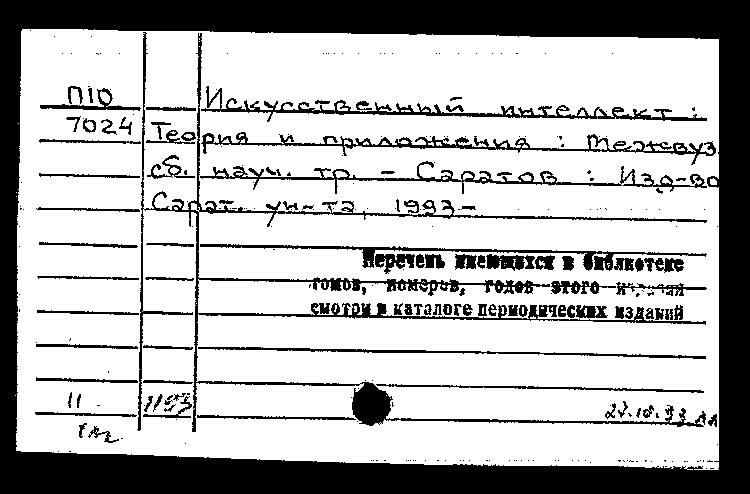 П10
Искусственный интеллект :
7024 Теория и приложения : Межвуз.
сб. науч. тр. - Саратов : Изд-во
Сарат. ун-та, 1993-
Перечень имеющихся в библиотеке
томов, номеров, годов этого издания
смотри в каталоге периодических изданий
11 1193